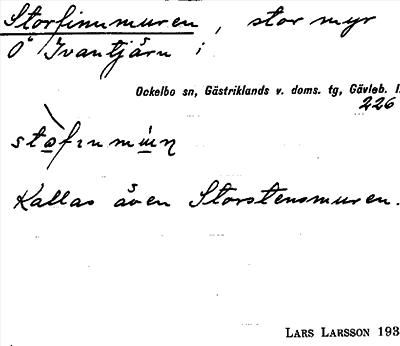 Storfinnmuren, stor myr
Ö Ivantjärn i
Ockelbo sn, Gästriklands v. doms. tg, Gävleb. l.
226
Kallas även Storstensmuren.
LARS LARSSON 193